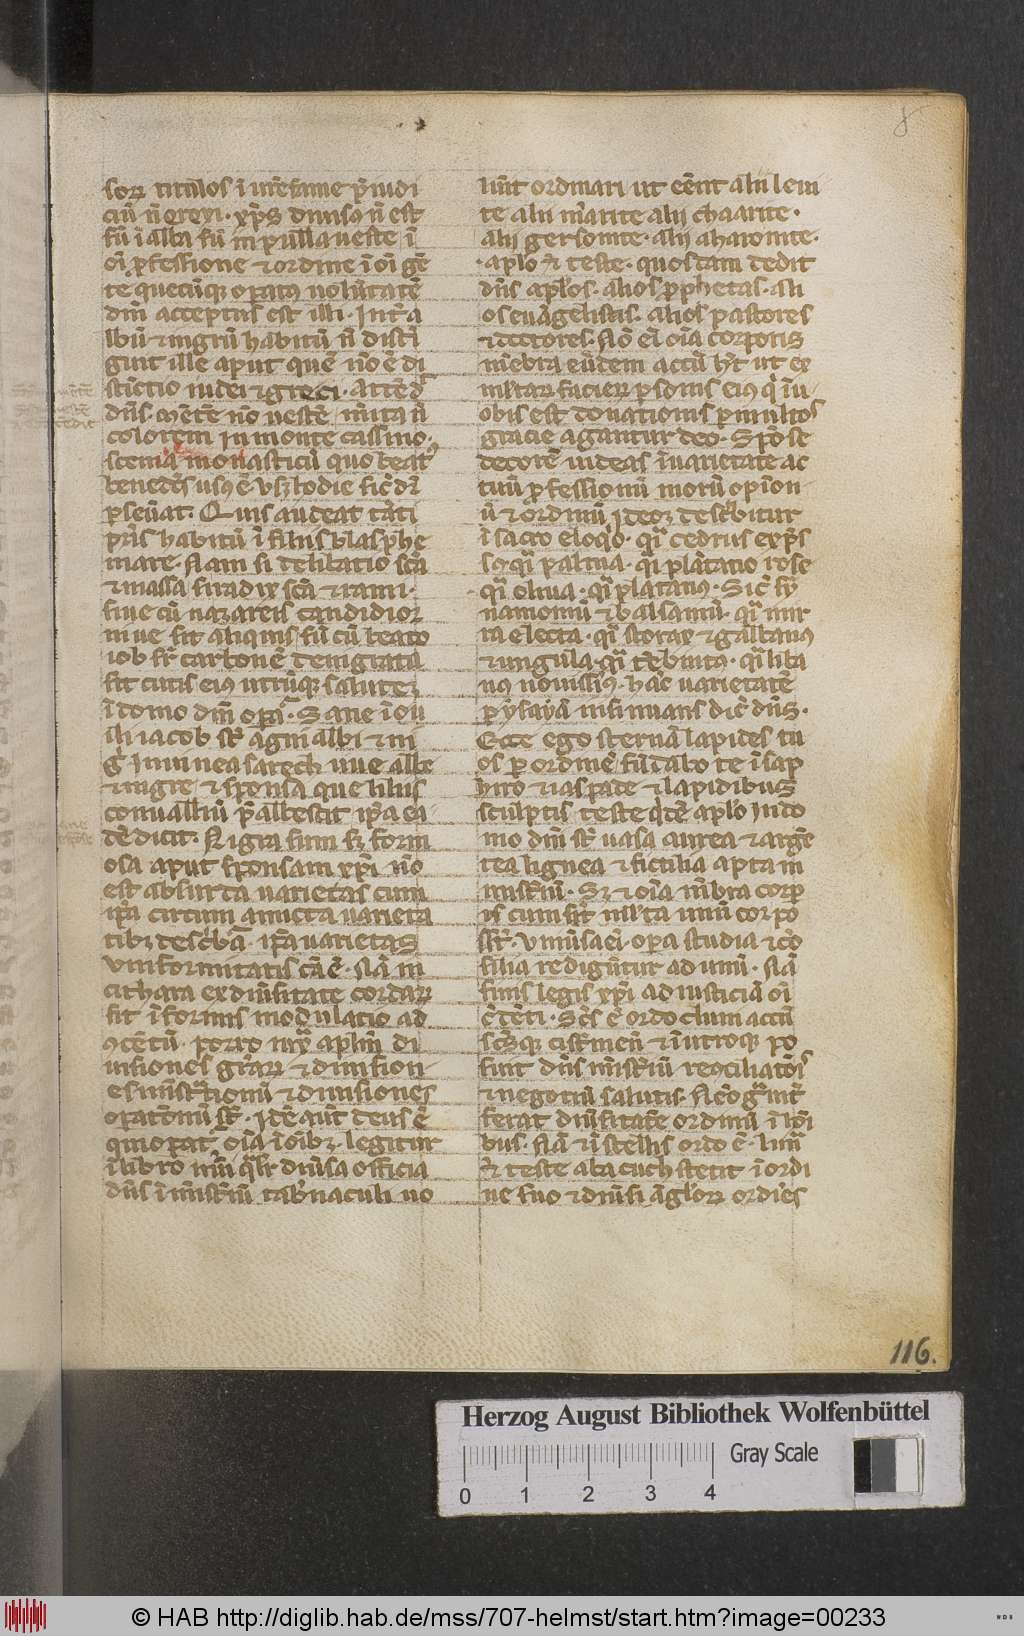 8
sorꝝ titulos
ciū n̄ greci · xp̄s diuisꝰ n̄ est
sū ī alba sū in pulla ueste ī
oī ꝓfessione ⁊ ordine ī oī gē
te quecūqꝫ operatꝰ uolūtatē
dn̄i acceptus est illi · Int̄ a
lbū ⁊ nigrū habitū n̄ disti
git ille aput quē nō ē di
stīctio iudei ⁊ greci · attēd
dn̄s mētē nō uestē
colorem In monte cassino ·
monasticū quo beatꝰ
benedc̄s usꝰ ē vsqꝫ hodie sic
ꝑseuat · Quis audeat tāti
pr̄is habitū ī filiis blasphe
mare · Nam si delibatio sc̄a
⁊ massa si radix sc̄a ⁊ rami ·
siue cū nazareis candidior
niue sit aliquis siue cū beato
iob sit carbonē denigrata
sit cutis eiꝰ utrūqꝫ salutē
ī domo dn̄i oꝑat̄ · Sane ī oui
li iacob st̄ agni albi ⁊ ni
gri In uinea sorech uue albe
⁊ nigre ⁊ sponsa que lilius
conualliū
dē dicit · Nigra sum sꝫ form
osa aput sponsam xp̄i nō
est absurda uarietas cum
ip̄a circum amicta uarieta
tibꝫ describat̄ · ip̄a uarietas
vniformitatis cā ē · Nā in
cithara ex diūsitate cordarꝝ
fit modulatio ad
ꝯcētū · porro
uisiones gr̄arꝝ ⁊ diuision
es mīstrationū ⁊ diuisiones
oꝑationū st̄ · Idē aut̄ deus ē
qui oꝑat̄ oīa ī oībꝫ · legitur
ī libro nūi qd̄ diūsa officia
dn̄s ī mīst̄iū tab̄naculi uo
luit ordinari ut eēnt alii leui
te alii m̄arite alij chaarite ·
alij gersonite · alij aharonite ·
aplo teste · quosdam dedit
dn̄s aplos · alios ꝓphetas · ali
os euāgelistas · alios pastores
⁊ doctores · Nō em̄ oīa corꝑis
mēbra eūdem actū hn̄t ut ex
multarꝝ facierꝝ ꝑsonis eiꝰ q̄ ī u
obis est donationis ꝑ multos
gracie agantur deo · Spōse
decorē uideas ī uarietate ac
tuū ꝓfessionū morū opinion
ū ⁊ ordinū describitur
ī sacro eloqo · qi cedrus
qi palma · qi plātatio rose
qi oliua · qi platanꝰ · Sic cy
namomū ⁊ balsamū · qi mir
ra electa · qi storax ⁊ galbanꝰ
⁊ ungula · qi tebīntꝰ · qi liba
nꝰ · hāc uarietatē
ꝑ ysayā insinuans dic̄ dn̄s ·
Ecce ego sternā lapides tu
os ꝑ ordinē fūdabo te ī sap
hiro ⁊ iaspide ⁊ lapidibus
sculptis teste eodē aplo In do
mo dn̄i st̄ uasa aurea ⁊ argē
tea lignea ⁊ fictilia apta in
mīst̄iū · Sꝫ ⁊ oīa mēbra corp
is cum sīt multa unū corpo
st̄ · Vniūsa ei oꝑa studia ⁊
filia redigūtur ad unū · Nā
finis legis xp̄i ad iusticiā oī
c̄dēti · Sic ē ordo
po
suit dn̄s mīst̄iū recōciliatōis
⁊ negotiū salutis ·
ferat diūsitatē ordinū ī hōi
bus · Nā ⁊ ī stellis ordo ē ·
teste abacuch stetit ī ordi
ne suo ⁊ diūsi āgl̄orꝝ ordīes
116.
Herzog August Bibliothek Wolfenbüttel
Gray Scale
0 1 2 3 4
© HAB http://diglib.hab.de/mss/707-helmst/start.htm?image=00233